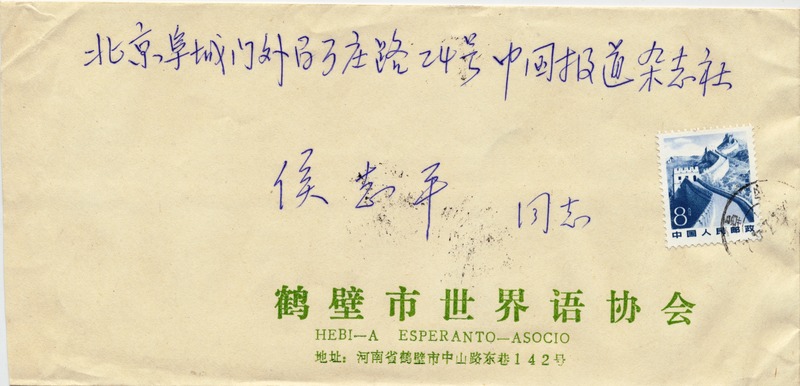 北京阜城门外百万庄路24号中国报道杂志社
侯志平
同志
8分
中国人民邮政
鹤壁市世界语协会
HEBI—A ESPERANTO—ASOCIO
地址：河南省鹤壁市中山路东巷142号